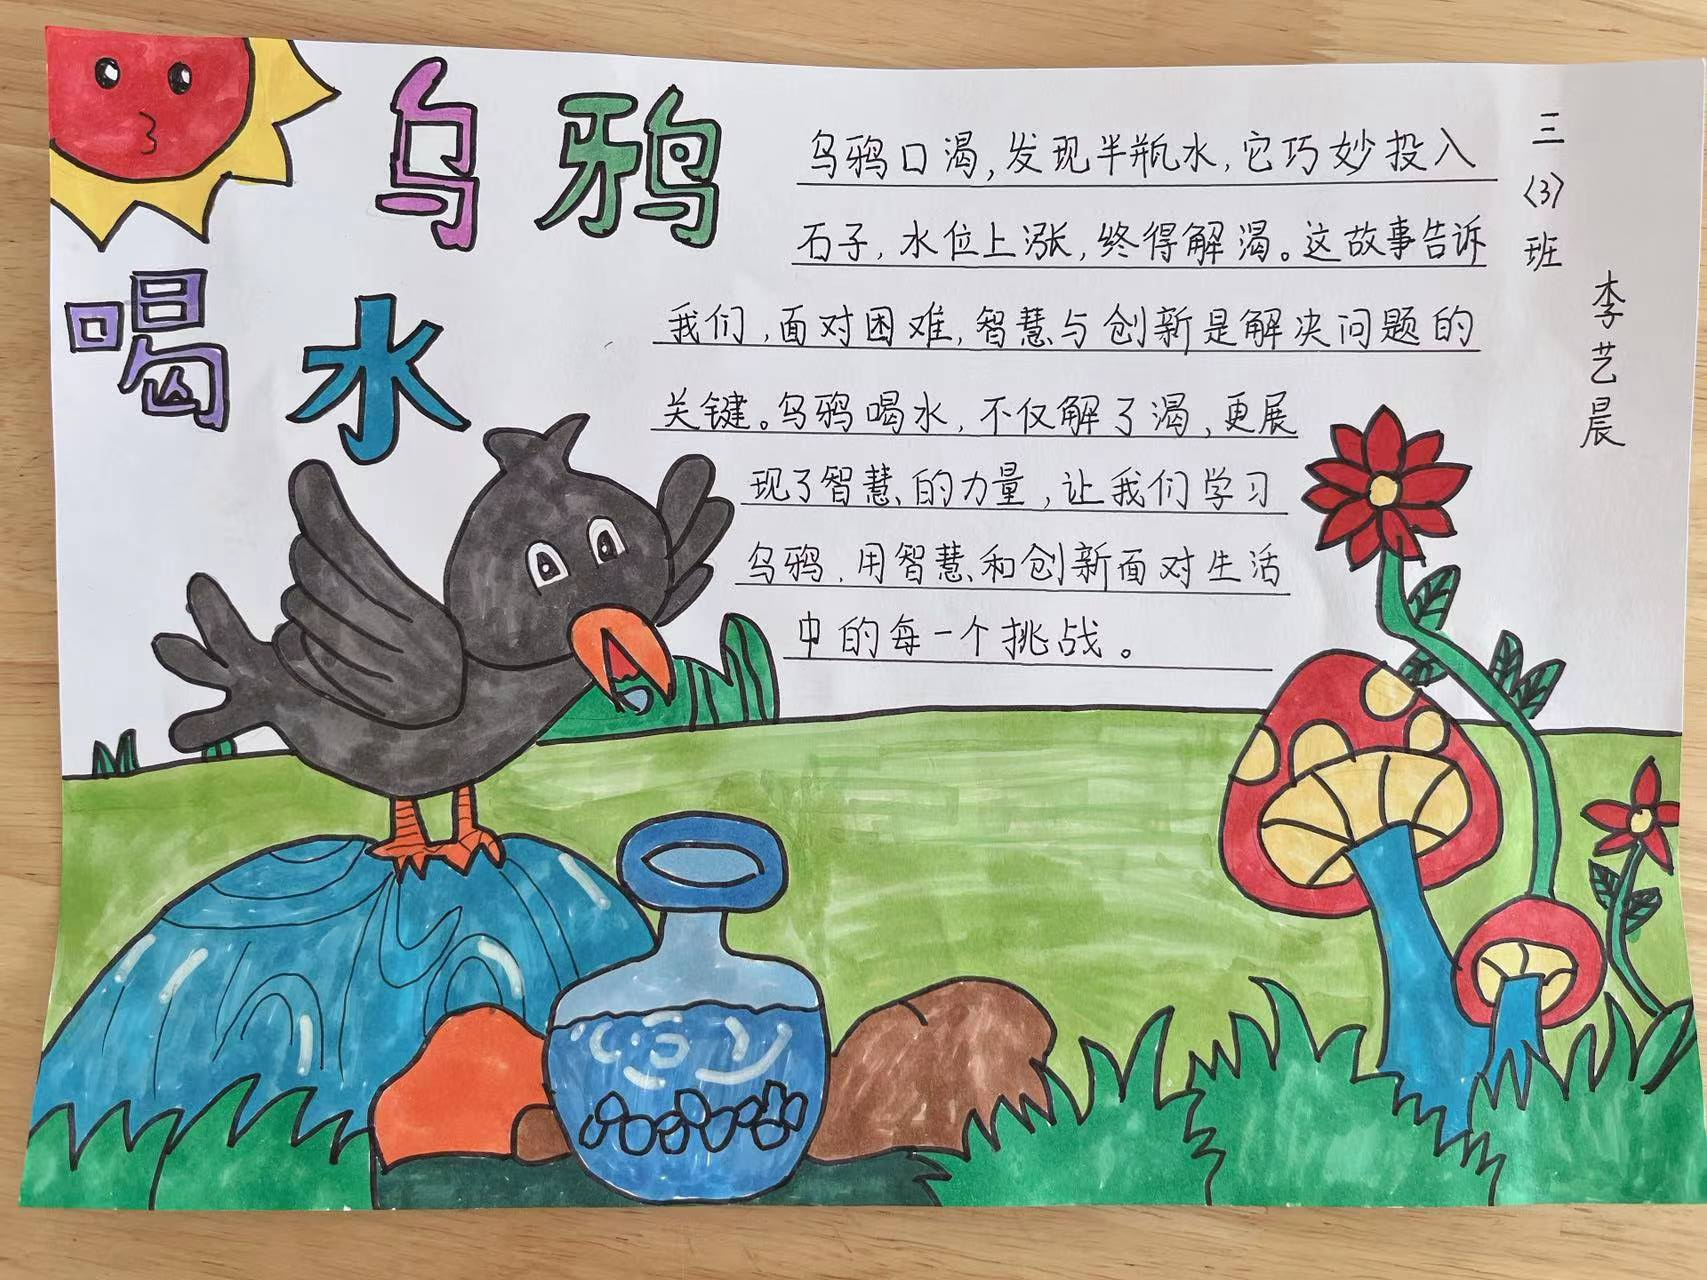 乌鸦
喝水
乌鸦口渴，发现半瓶水，它巧妙投入
石子，水位上涨，终得解渴。这故事告诉
我们，面对困难，智慧与创新是解决问题的
关键。乌鸦喝水，不仅解了渴、更展
现了智慧的力量，让我们学习
乌鸦、用智慧和创新面对生活
中的每一个挑战。
三（3）班
李艺晨